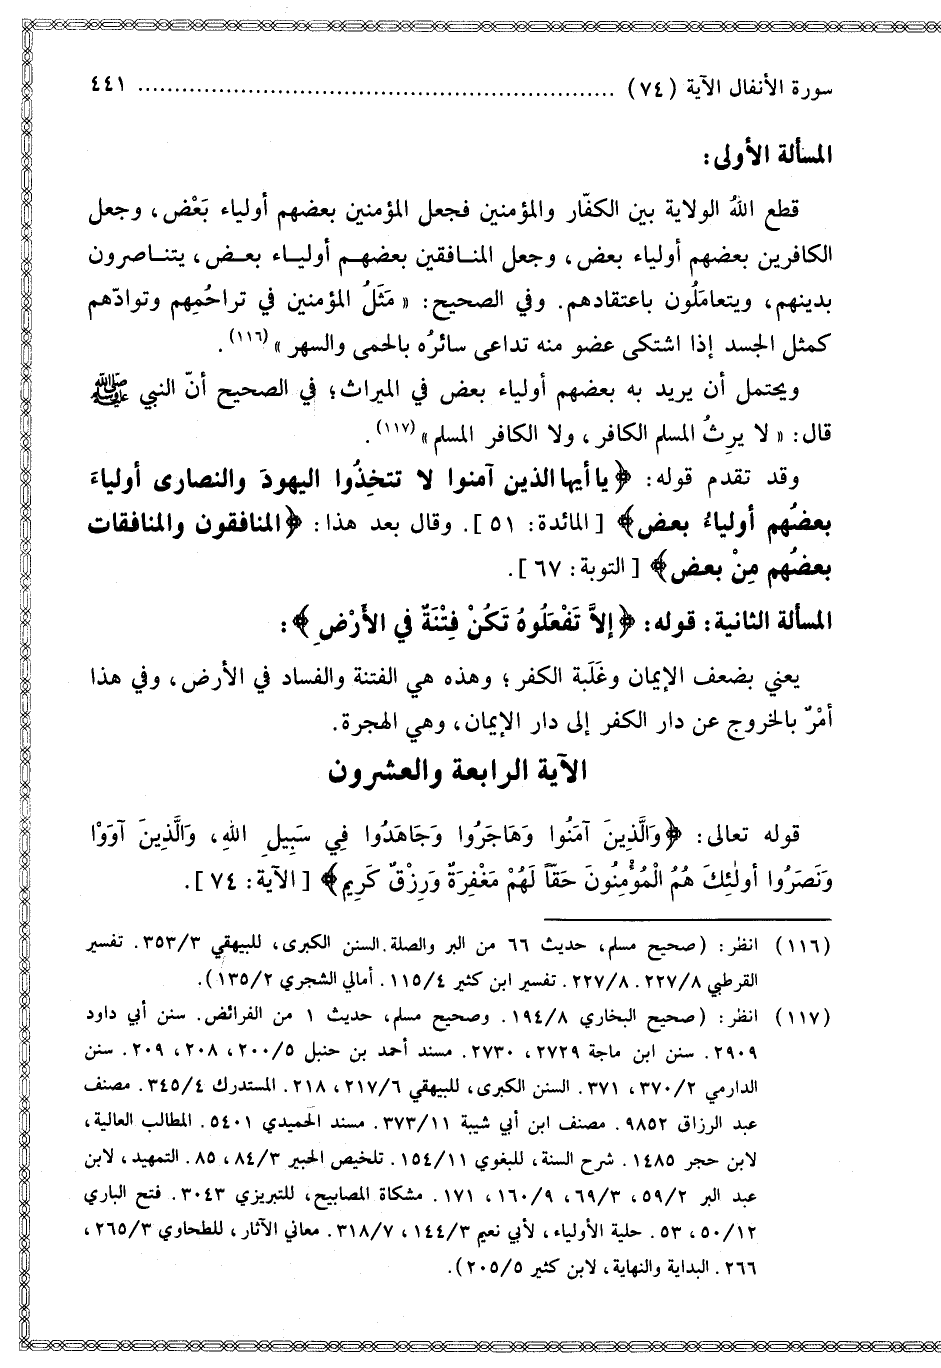 سورة الأنفال الآية (٧٤) ................................................................ ٤٤١
المسألة الأولى:
قطع اللهُ الولاية بين الكفّار والمؤمنين فجعل المؤمنين بعضهم أولياء بَعْض، وجعل
الكافرين بعضهم أولياء بعض، وجعل المنافقين بعضهم أولياء بعض، يتناصرون
بدينهم، ويتعاملُون باعتقادهم. وفي الصحيح: « مَثَلُ المؤمنين في تراحُمِهم وتوادّهم
كمثل الجسد إذا اشتكى عضو منه تداعى سائرُه بالحمى والسهر »(١١٦).
ويحتمل أن يريد به بعضهم أولياء بعض في الميراث؛ في الصحيح أنّ النبي ﷺ
قال: « لا يرِثُ المسلم الكافر، ولا الكافر المسلم »(١١٧).
وقد تقدم قوله: ﴿يا أيها الذين آمنوا لا تتخِذُوا اليهودَ والنصارى أولياءَ
بعضُهم أولياءُ بعض﴾ [المائدة: ٥١]. وقال بعد هذا: ﴿المنافقون والمنافقات
بعضُهم مِنْ بعض﴾ [التوبة: ٦٧].
المسألة الثانية: قوله: ﴿إلاَّ تَفْعَلُوهُ تَكُنْ فِتْنَةٌ في الأَرْضِ﴾:
يعني بضعف الإيمان وغَلَبة الكفر؛ وهذه هي الفتنة والفساد في الأرض، وفي هذا
أمْرٌ بالخروج عن دار الكفر إلى دار الإيمان، وهي الهجرة.
الآية الرابعة والعشرون
قوله تعالى: ﴿وَالَّذِينَ آمَنُوا وَهَاجَرُوا وَجَاهَدُوا فِي سَبِيلِ اللهِ، وَالَّذِينَ آوَوْا
وَنَصَرُوا أولٰئِكَ هُمُ الْمُؤْمِنُونَ حَقّاً لَهُمْ مَغْفِرَةٌ وَرِزْقٌ كَرِيم﴾ [الآية: ٧٤].
(١١٦) انظر: (صحيح مسلم، حديث ٦٦ من البر والصلة. السنن الكبرى، للبيهقي ٣٥٣/٣. تفسير
القرطبي ٢٢٧/٨. ٢٢٧/٨. تفسير ابن كثير ١١٥/٤. أمالي الشجري ١٣٥/٢).
(١١٧) انظر: (صحيح البخاري ١٩٤/٨. وصحيح مسلم، حديث ١ من الفرائض. سنن أبي داود
٢٩٠٩. سنن ابن ماجة ٢٧٢٩، ٢٧٣٠. مسند أحمد بن حنبل ٢٠٠/٥، ٢٠٨، ٢٠٩. سنن
الدارمي ٣٧٠/٢، ٣٧١. السنن الكبرى، للبيهقي ٢١٧/٦، ٢١٨. المستدرك ٣٤٥/٤. مصنف
عبد الرزاق ٩٨٥٢. مصنف ابن أبي شيبة ٣٧٣/١١. مسند الحميدي ٥٤٠١. المطالب العالية،
لابن حجر ١٤٨٥. شرح السنة، للبغوي ١٥٤/١١. تلخيص الحبير ٨٤/٣، ٨٥. التمهيد، لابن
عبد البر ٥٩/٢، ٦٩/٣، ١٦٠/٩، ١٧١. مشكاة المصابيح، للتبريزي ٣٠٤٣. فتح الباري
٥٠/١٢، ٥٣. حلية الأولياء، لأبي نعيم ١٤٤/٣، ٣١٨/٧. معاني الآثار، للطحاوي ٢٦٥/٣،
٢٦٦. البداية والنهاية، لابن كثير ٢٠٥/٥).